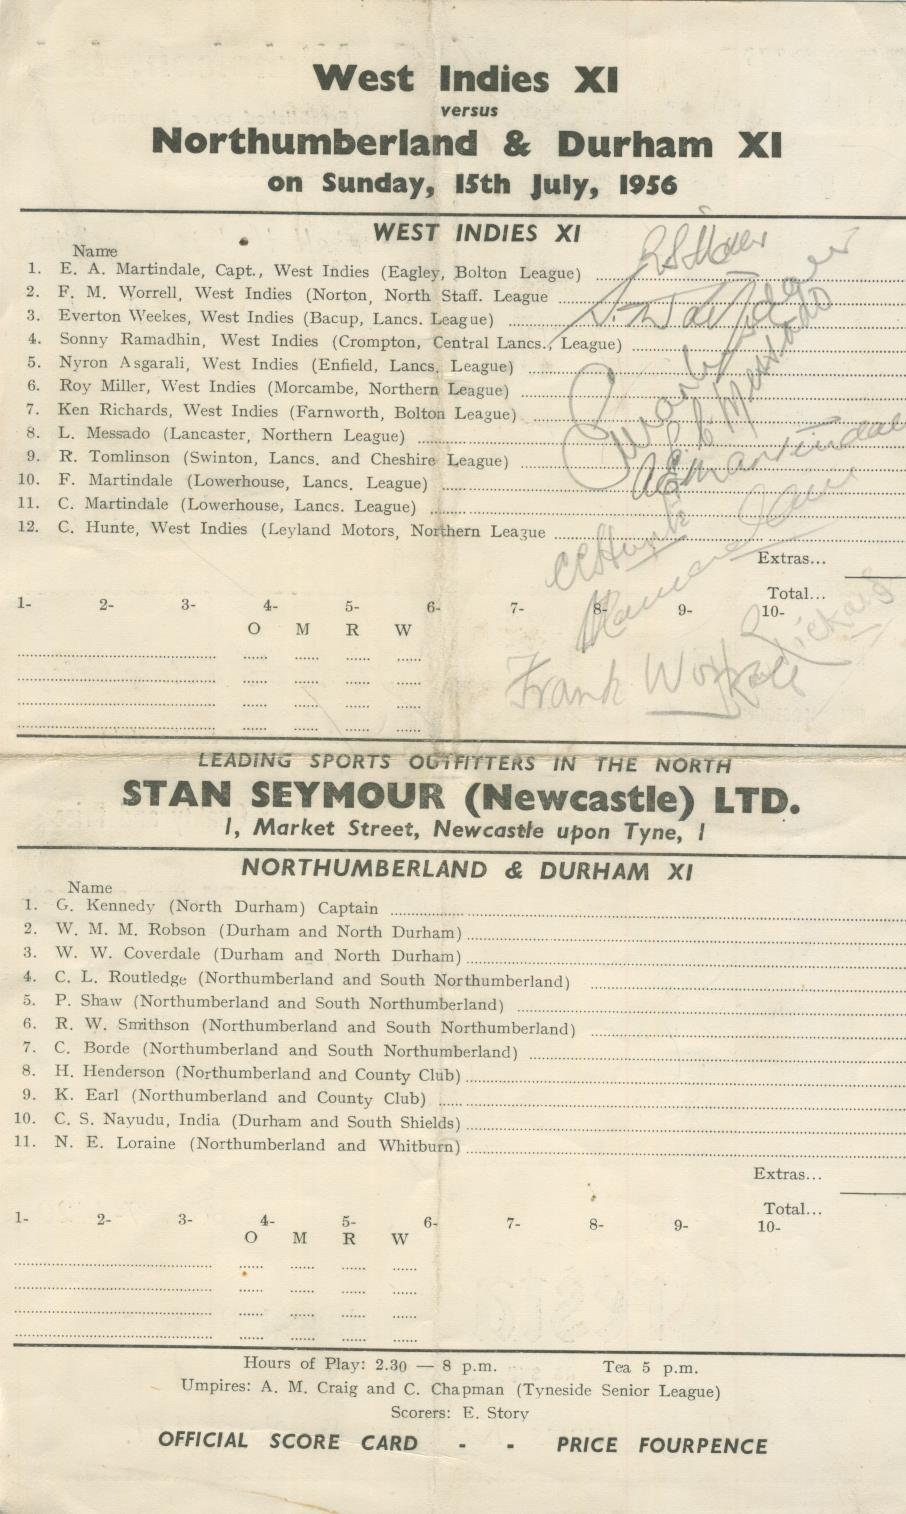 West Indies XI
versus
Northumberland & Durham XI
on Sunday, 15th July, 1956
WEST INDIES XI
Name
1. E. A. Martindale, Capt., West Indies (Eagley, Bolton League)
2. F. M. Worrell, West Indies (Norton, North Staff. League
3. Everton Weekes, West Indies (Bacup, Lancs. League)
4. Sonny Ramadhin, West Indies (Crompton, Central Lancs., League)
5. Nyron Asgarali, West Indies (Enfield, Lancs. League)
6. Roy Miller, West Indies (Morcambe, Northern League)
7. Ken Richards, West Indies (Farnworth, Bolton League)
8. L. Messado (Lancaster, Northern League)
9. R. Tomlinson (Swinton, Lancs. and Cheshire League)
10. F. Martindale (Lowerhouse, Lancs. League)
11. C. Martindale (Lowerhouse, Lancs. League)
12. C. Hunte, West Indies (Leyland Motors, Northern League
Extras...
Total...
1- 2- 3- 4- 5- 6- 7- 8- 9- 10-
O M R W
E A Martindale
CC Hunte
Rickards
Frank Worrell
LEADING SPORTS OUTFITTERS IN THE NORTH
STAN SEYMOUR (Newcastle) LTD.
1, Market Street, Newcastle upon Tyne, 1
NORTHUMBERLAND & DURHAM XI
Name
1. G. Kennedy (North Durham) Captain
2. W. M. M. Robson (Durham and North Durham)
3. W. W. Coverdale (Durham and North Durham)
4. C. L. Routledge (Northumberland and South Northumberland)
5. P. Shaw (Northumberland and South Northumberland)
6. R. W. Smithson (Northumberland and South Northumberland)
7. C. Borde (Northumberland and South Northumberland)
8. H. Henderson (Northumberland and County Club)
9. K. Earl (Northumberland and County Club)
10. C. S. Nayudu, India (Durham and South Shields)
11. N. E. Loraine (Northumberland and Whitburn)
Extras...
Total...
1- 2- 3- 4- 5- 6- 7- 8- 9- 10-
O M R W
Hours of Play: 2.30 — 8 p.m. Tea 5 p.m.
Umpires: A. M. Craig and C. Chapman (Tyneside Senior League)
Scorers: E. Story
OFFICIAL SCORE CARD - - PRICE FOURPENCE